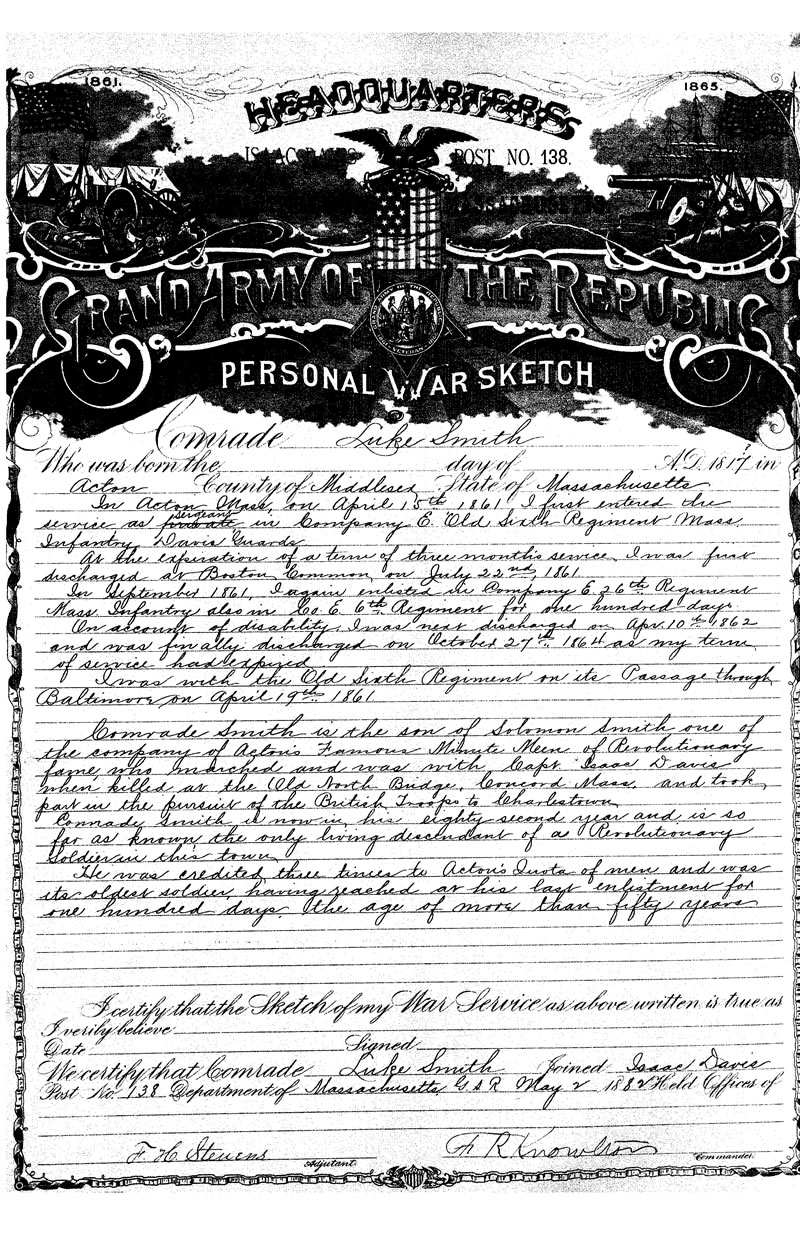 1861. 1865.
HEADQUARTERS
ISAAC DAVIS POST NO. 138.
MASSACHUSETTS
GRAND ARMY OF THE REPUBLIC
VETERAN
PERSONAL WAR SKETCH
Comrade Luke Smith
Who was born the day of A.D. 1817 in
Acton County of Middlesex State of Massachusetts
In Acton Mass, on April 15th 1861 I first entered the
sergeant
service as private in Company E. Old Sixth Regiment Mass.
Infantry Davis Guards
At the expiration of a term of three months service I was first
discharged at Boston Common on July 22nd, 1861
In September 1861, I again enlisted in Company E 26th Regiment
Mass. Infantry also in Co. E. 6th Regiment for one hundred days
On account of disability, I was next discharged on Apr. 10th 1862
and was finally discharged on October 27th 1864 as my term
of service had expired
I was with the Old Sixth Regiment on its Passage through
Baltimore on April 19th 1861
Comrade Smith is the son of Solomon Smith one of
the company of Acton's Famous Minute Men of Revolutionary
fame who marched and was with Capt Isaac Davis
when killed at the Old North Bridge, Concord Mass. and took
part in the pursuit of the British Troops to Charlestown
Comrade Smith is now in his eighty second year and is so
far as known, the only living descendant of a Revolutionary
Soldier in this town
He was credited three times to Acton's Quota of men and was
its oldest soldier, having reached at his last enlistment for
one hundred days, the age of more than fifty years
I certify that the Sketch of my War Service as above written is true as
I verily believe
Date Signed
We certify that Comrade Luke Smith Joined Isaac Davis
Post No. 138 Department of Massachusetts G A R May 2 1882 Held Offices of
F. H. Stevens R Knowlton
Adjutant. Commander.